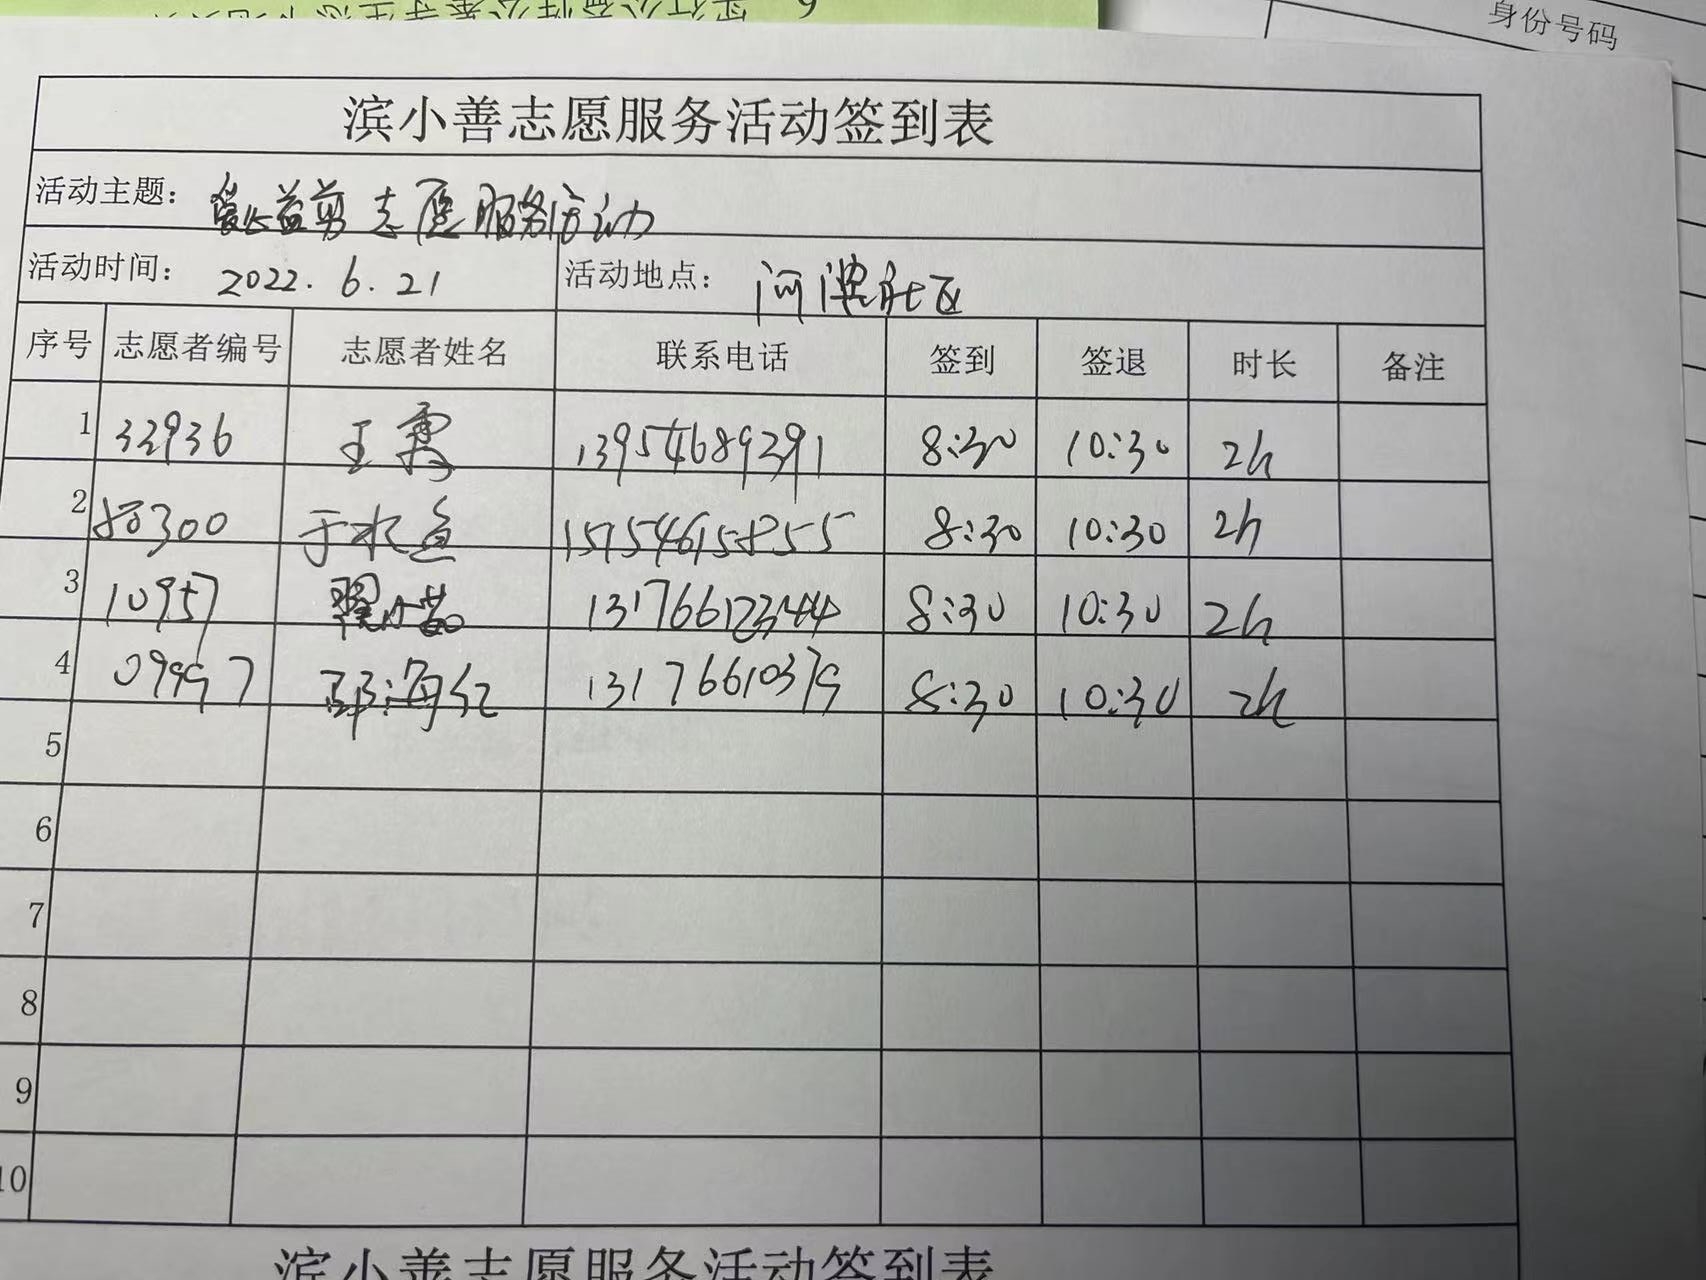 身份号码
滨小善志愿服务活动签到表
活动主题: 爱心益剪志愿服务活动
活动时间: 2022.6.21 活动地点: 河滨社区
序号 志愿者编号 志愿者姓名 联系电话 签到 签退 时长 备注
1 33936 王霞 13954689391 8:30 10:30 2h
2 300 于水 8:30 10:30 2h
3 10957 翟小茹 13176612344 8:30 10:30 2h
4 邱海红 13176610379 8:30 10:30 2h
5
6
7
8
9
10
滨小善志愿服务活动签到表